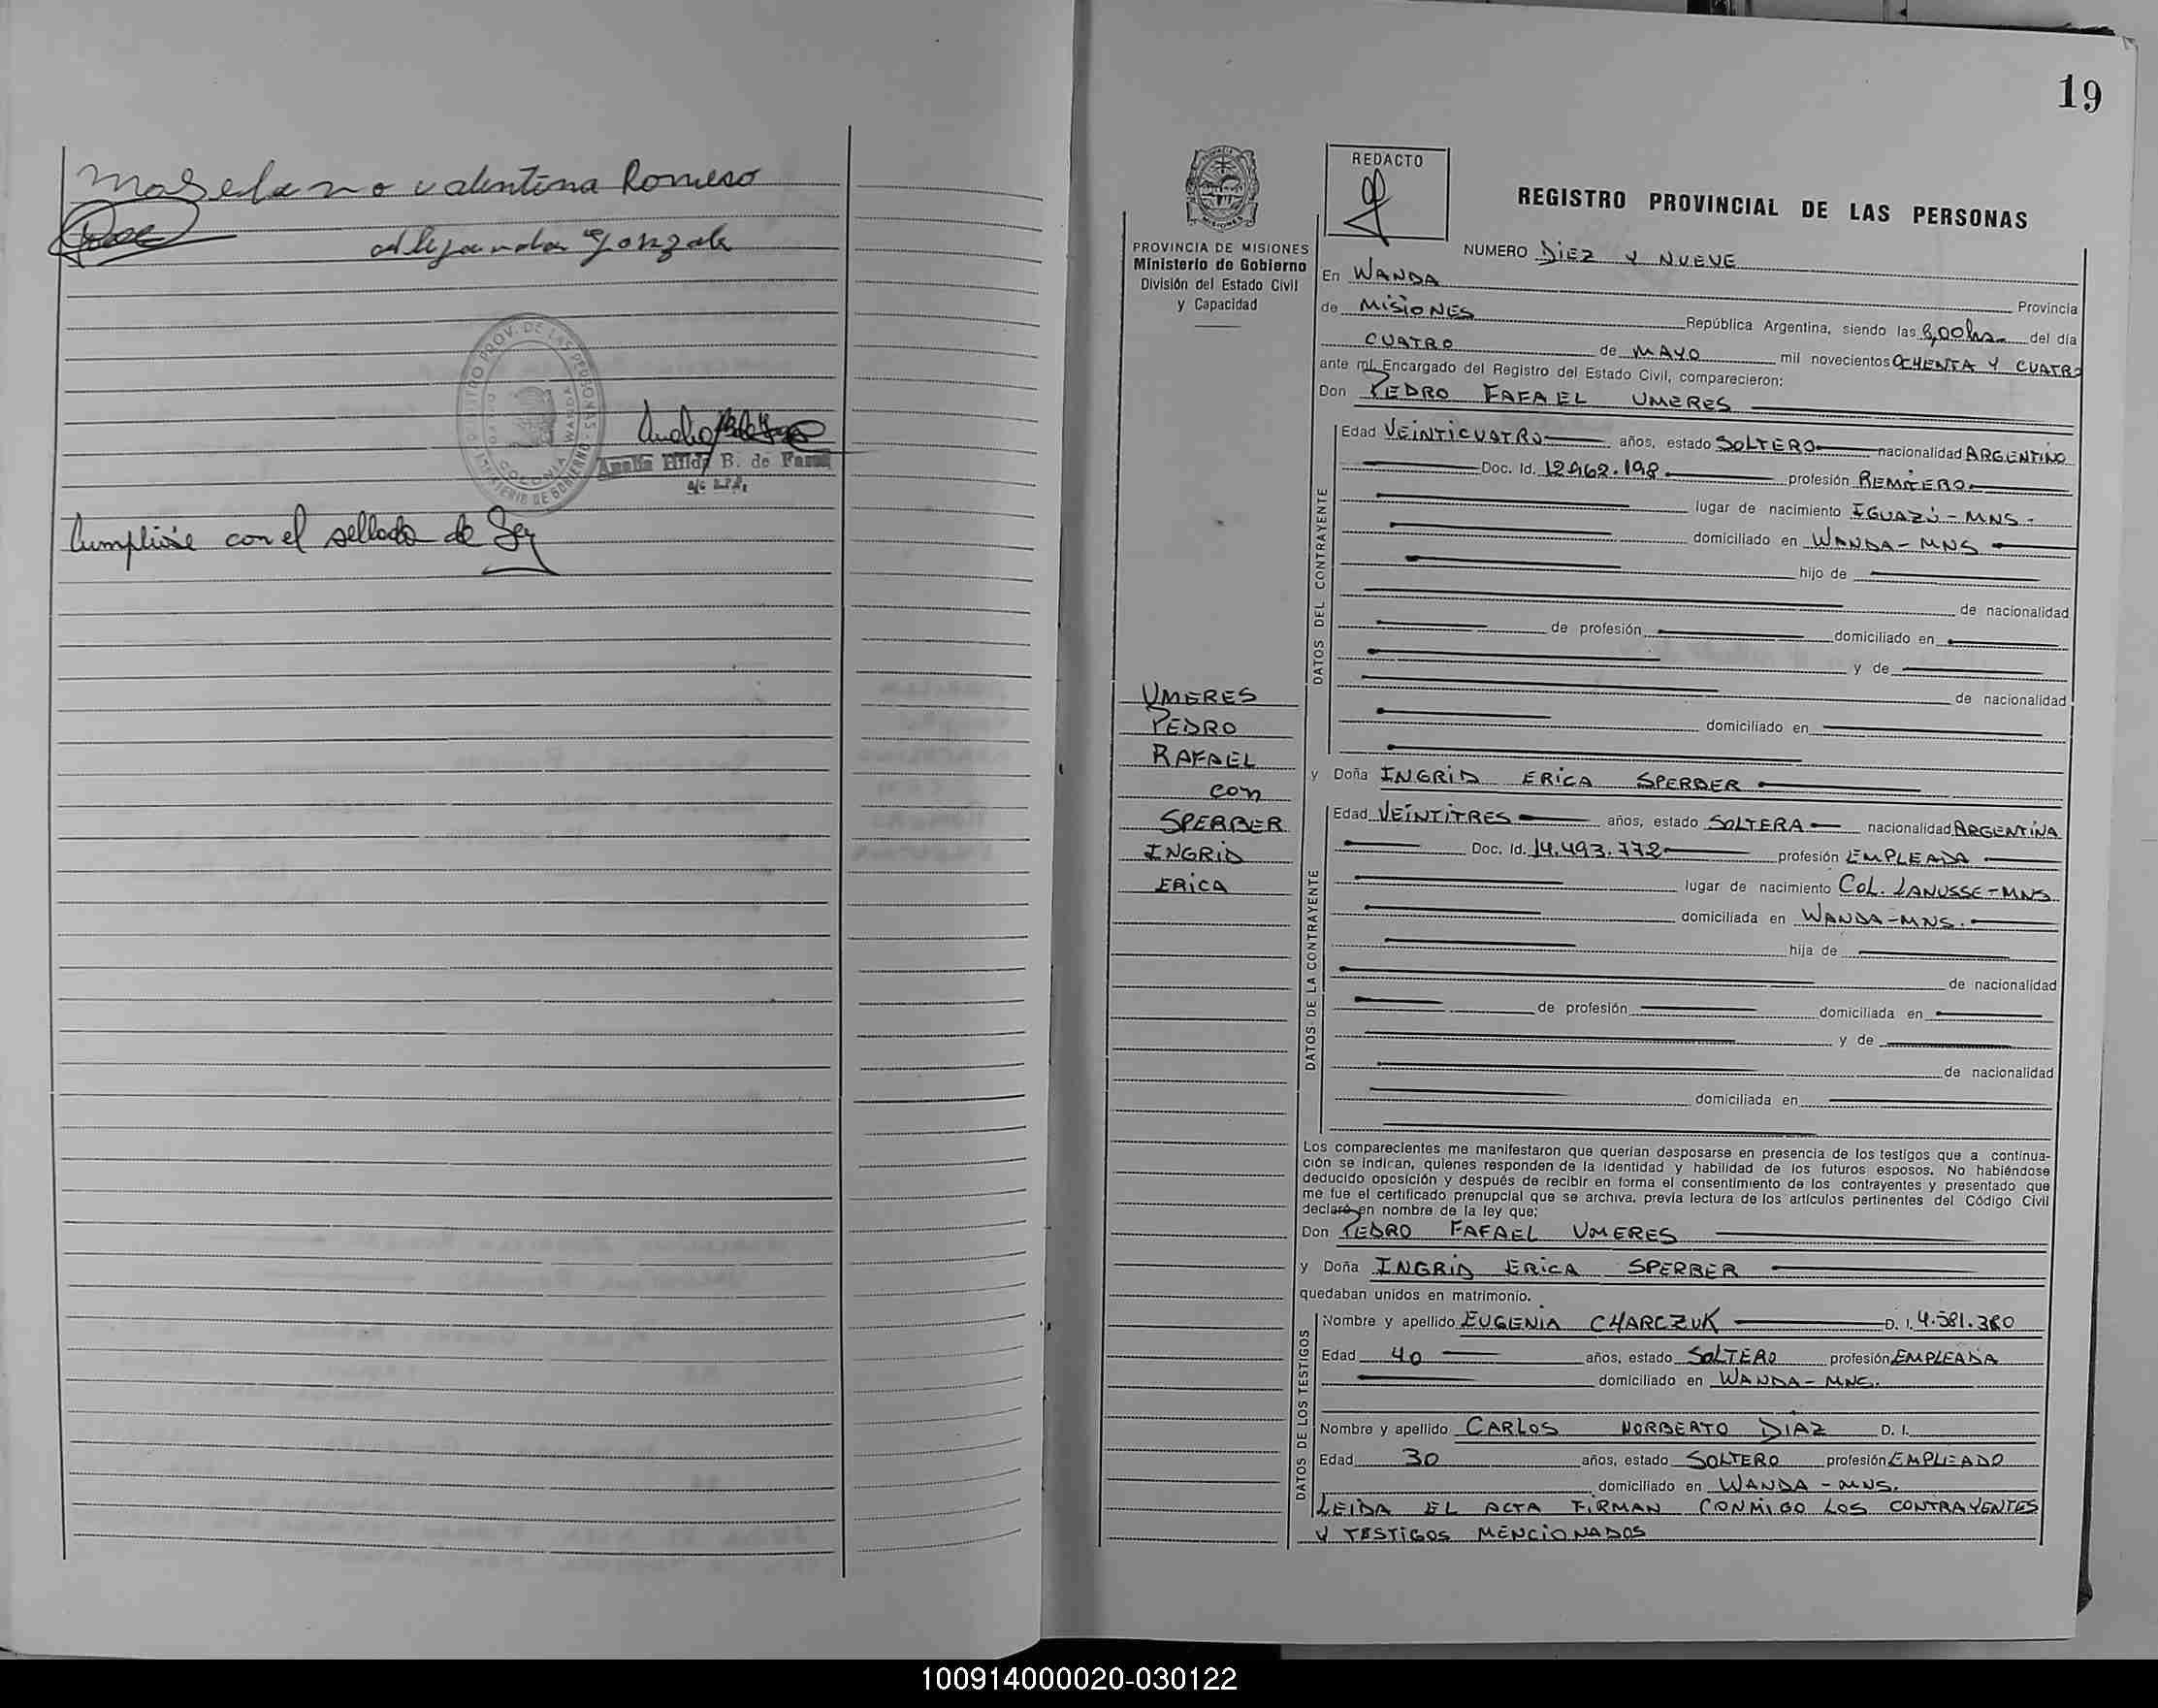 valentina Romero
Amalia Hilda B. de
Cumplióse con el sellado de Ley
19
PROVINCIA DE MISIONES
Ministerio de Gobierno
División del Estado Civil
y Capacidad
REDACTO
REGISTRO PROVINCIAL DE LAS PERSONAS
NUMERO DIEZ Y NUEVE
En WANDA Provincia
de MISIONES República Argentina, siendo las 8,00hs del día
CUATRO de MAYO mil novecientos OCHENTA Y CUATRO
ante mí, Encargado del Registro del Estado Civil, comparecieron:
Don PEDRO FAFAEL UMERES
DATOS DEL CONTRAYENTE
Edad VEINTICUATRO años, estado SOLTERO nacionalidad ARGENTINO
Doc. Id. 12.962.198 profesión REMISERO
lugar de nacimiento IGUAZÚ - MNS -
domiciliado en WANDA - MNS
hijo de
de nacionalidad
de profesión domiciliado en
y de
de nacionalidad
domiciliado en
UMERES
PEDRO
RAFAEL
con
SPERBER
INGRID
ERICA
y Doña INGRID ERICA SPERBER
DATOS DE LA CONTRAYENTE
Edad VEINTITRES años, estado SOLTERA nacionalidad ARGENTINA
Doc. Id. 14.493.772 profesión EMPLEADA
lugar de nacimiento COL. LANUSSE - MNS
domiciliada en WANDA - MNS.
hija de
de nacionalidad
de profesión domiciliada en
y de
de nacionalidad
domiciliada en
Los comparecientes me manifestaron que querían desposarse en presencia de los testigos que a continua-
ción se indican, quienes responden de la identidad y habilidad de los futuros esposos. No habiéndose
deducido oposición y después de recibir en forma el consentimiento de los contrayentes y presentado que
me fue el certificado prenupcial que se archiva, previa lectura de los artículos pertinentes del Código Civil
declaré en nombre de la ley que:
Don PEDRO FAFAEL UMERES
y Doña INGRID ERICA SPERBER
quedaban unidos en matrimonio.
DATOS DE LOS TESTIGOS
Nombre y apellido EUGENIA CHARCZUK D. I. 4.581.380
Edad 40 años, estado SOLTERO profesión EMPLEADA
domiciliado en WANDA - MNS.
Nombre y apellido CARLOS NORBERTO DIAZ D. I.
Edad 30 años, estado SOLTERO profesión EMPLEADO
domiciliado en WANDA - MNS.
LEIDA EL ACTA FIRMAN CONMIGO LOS CONTRAYENTES
Y TESTIGOS MENCIONADOS
100914000020-030122